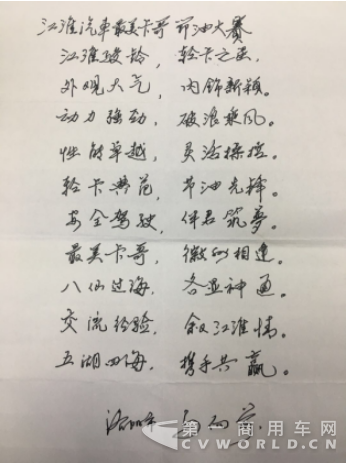 江淮汽車最美卡哥 节油大賽
江淮骏铃，轻卡之王，
外观大气，内饰新颖。
动力强劲，破浪乘风。
性能卓越，灵活操控。
轻卡典范，节油先锋。
安全驾驶，伴君筑夢。
最美卡哥，微山相逢。
八仙过海，各显神通。
交流经验，叙江淮情。
五湖四海，携手共赢。
第一商用车网
CVWORLD.CN